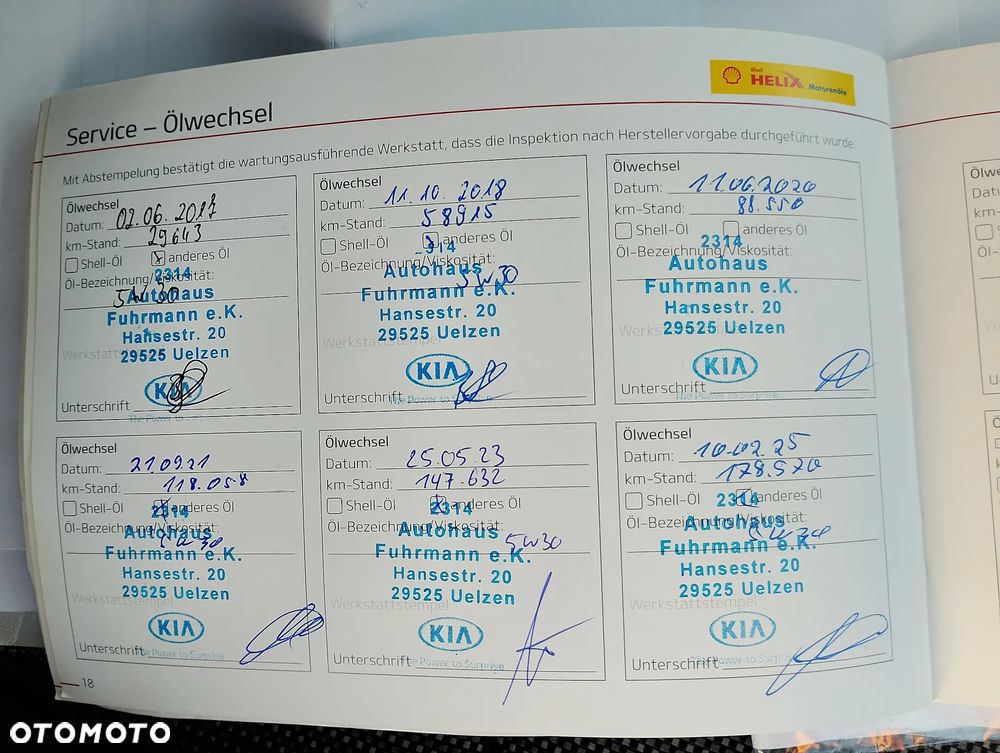 Shell
HELIX
Motorenöle
Service – Ölwechsel
Mit Abstempelung bestätigt die wartungsausführende Werkstatt, dass die Inspektion nach Herstellervorgabe durchgeführt wurde.
Ölwechsel
Datum: 02.06.2017
km-Stand: 29643
Shell-Öl anderes Öl
Öl-Bezeichnung/Viskosität:
2314
5W30
Autohaus
Fuhrmann e.K.
Hansestr. 20
29525 Uelzen
KIA
Unterschrift
The Power to Surprise
Ölwechsel
Datum: 11.10.2018
km-Stand: 58915
Shell-Öl anderes Öl
Öl-Bezeichnung/Viskosität:
2314
Autohaus
5W30
Fuhrmann e.K.
Hansestr. 20
29525 Uelzen
Werkstattstempel
KIA
Unterschrift
The Power to Surprise
Ölwechsel
Datum: 11.06.2020
km-Stand: 88.550
Shell-Öl anderes Öl
2314
Öl-Bezeichnung/Viskosität:
Autohaus
Fuhrmann e.K.
Hansestr. 20
29525 Uelzen
KIA
Unterschrift
The Power to Surprise
Ölwechsel
Datum: 21.09.21
km-Stand: 118.058
Shell-Öl anderes Öl
2314
Öl-Bezeichnung/Viskosität:
Autohaus
5W30
Fuhrmann e.K.
Hansestr. 20
29525 Uelzen
Werkstattstempel
KIA
Unterschrift
The Power to Surprise
Ölwechsel
Datum: 25.05.23
km-Stand: 147.632
Shell-Öl anderes Öl
2314
Öl-Bezeichnung/Viskosität:
Autohaus
5W30
Fuhrmann e.K.
Hansestr. 20
29525 Uelzen
Werkstattstempel
KIA
Unterschrift
The Power to Surprise
Ölwechsel
Datum: 10.02.25
km-Stand: 178.520
Shell-Öl anderes Öl
2314
Öl-Bezeichnung/Viskosität:
Autohaus
5W30
Fuhrmann e.K.
Hansestr. 20
29525 Uelzen
Werkstattstempel
KIA
Unterschrift
The Power to Surprise
18
OTOMOTO